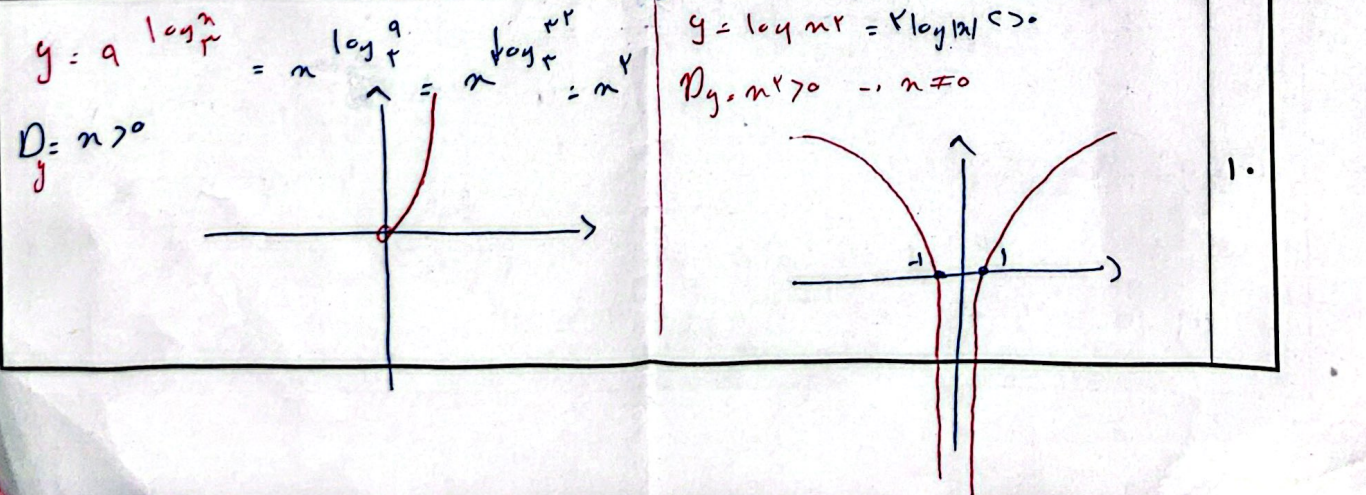 y = 9^{log_۳^x} = x^{log_۳^9} = x^{log_۳^{۳^۲}} = x^۲
D_y = x > 0
y = log x^۲ = ۲ log |x|
D_y = x^۲ > 0 → x ≠ 0
-1 1
۱۰